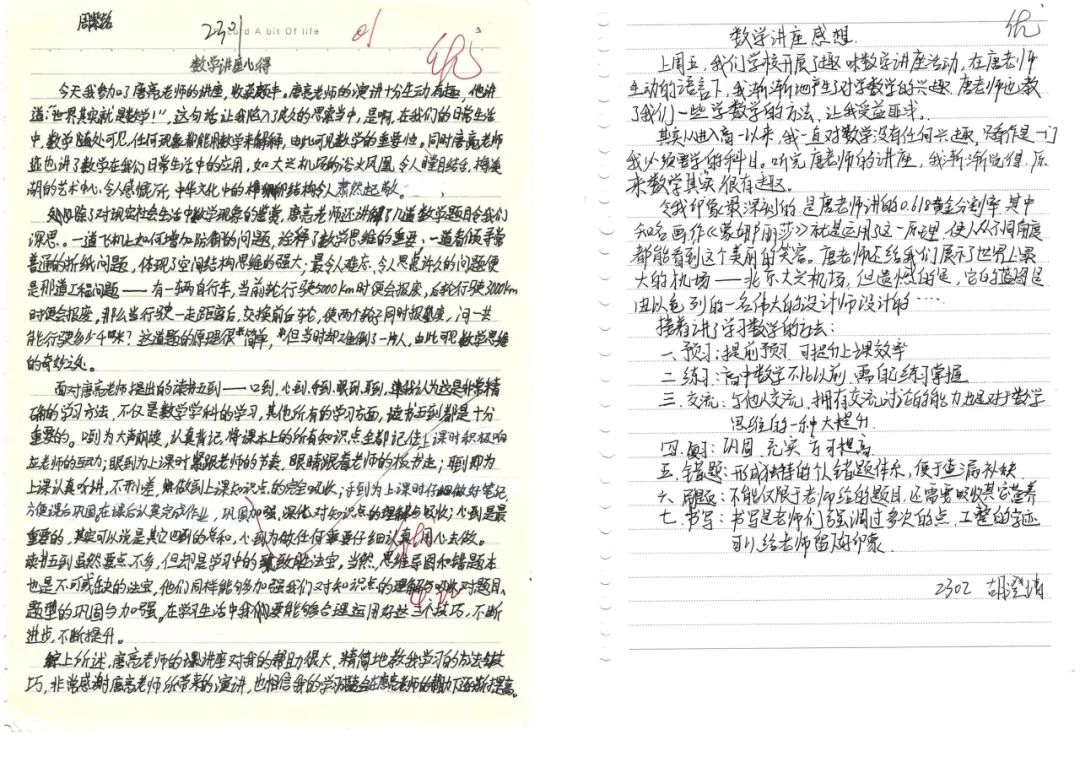 2301
Record A bit Of life
优
数学讲座心得
今天我参加了唐亮老师的讲座，收获颇丰。唐亮老师的演讲十分生动有趣，他讲
道"世界真实就是数学！"，这句话让我陷入了良久的思索当中，是啊，在我们的日常生活
中，数学随处可见，任何现象都能用数学来解释，由此可见数学的重要性。同时唐亮老师
也讲了数学在我们日常生活中的应用，如大兴机场的浴火凤凰，令人瞠目结舌，梅溪
湖的艺术中心，令人感慨万千，中华文化中的榫卯结构令人肃然起敬。
除了对现实社会生活中数学现象的鉴赏，唐亮老师还讲解了几道数学题目令我们
深思。一道飞机上如何增加防御的问题，诠释了数学思维的重要；一道看似寻常
普通的折纸问题，体现了空间结构思维的强大；最令人难忘、令人思虑许久的问题便
是那道工程问题——有一辆自行车，当前轮行驶5000km时便会报废，后轮行驶3000km
时便会报废，那么当行驶一定距离后，交换前后车轮，使两个轮子同时报废，问一共
能行驶多少千米？这道题的原理很简单，但当时却难倒了一片人，由此可见数学思维
的奇妙之处。
面对唐亮老师提出的读书五到——口到、心到、手到、眼到、耳到，我认为这是非常精
确的学习方法，不仅是数学学科的学习，其他所有的学习方面，读书五到都是十分
重要的。口到为大声朗读，认真背记，将课本上的所有知识点全都记住，上课时积极响
应老师的互动；眼到为上课时紧跟老师的节奏，眼睛跟着老师的板书走；耳到即为
上课认真听讲，不开小差，做到上课知识点的完全吸收；手到为上课时仔细做好笔记，
方便课后巩固，在课后认真完成作业，巩固加强，深化对知识点的理解与吸收；心到是最
重要的，其实可以说是其它四到的总和，心到为做任何事要仔细认真，用心去做。
读书五到虽然要点不多，但却是学习中的致胜法宝，当然，思维导图和错题本
也是不可或缺的法宝，他们同样能够加强我们对知识点的理解与吸收，对题目、
题型的巩固与加强。在学习生活中我们要能够合理运用好这三个技巧，不断
进步，不断提升。
综上所述，唐亮老师的讲座对我的帮助很大，精简地教我学习的办法与技
巧，非常感谢唐亮老师所带来的演讲，也相信我的学习会在唐亮老师的帮助下不断提高。
优
数学讲座感想
上周五，我们学校开展了趣味数学讲座活动，在唐老师
生动的语言下，我渐渐地产生了对学数学的兴趣，唐老师也教
了我们一些学数学的方法，让我受益匪浅。
其实从进入高一以来，我一直对数学没有任何兴趣，只看作是一门
我必须要学的科目。听完唐老师的讲座，我渐渐觉得，原
来数学其实很有趣。
令我印象最深刻的是唐老师讲的0.618黄金分割率，其中
知名画作《蒙娜丽莎》就是运用了这一原理，使人从不同角度
都能看到这个美丽的笑容。唐老师还给我们展示了世界上最
大的机场——北京大兴机场，但遗憾的是，它的蓝图是
由以色列的一名伟大的设计师设计的……
接着讲了学习数学的方法：
一、预习：提前预习，可提升上课效率
二、练习：高中数学不比以前，需自己练习掌握
三、交流：与他人交流，拥有交流讨论的能力也是对于数学
思维的一种大提升.
四、复习：巩固、充实，方可提高
五、错题：形成独特的个人错题体系，便于查漏补缺
六、刷题：不能仅限于老师给的题目，还需要吸收其它营养
七、书写：书写是老师们强调过多次的点，工整的字迹
可以给老师留下好印象.
2302 胡澄清